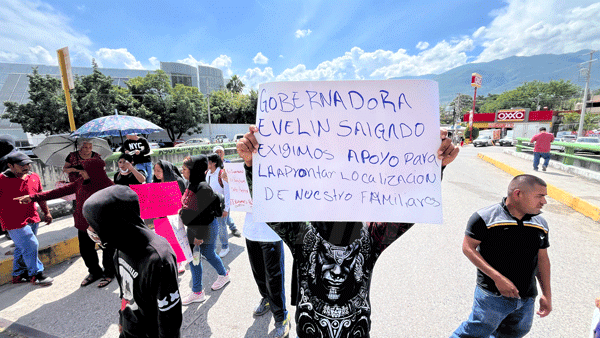 GOBERNADORA
EVELIN SALGADO
EXIGIMOS APOYO PARA
LA PRONTA LOCALIZACION
DE NUESTRO FAMILIARES
OXXO
NYC